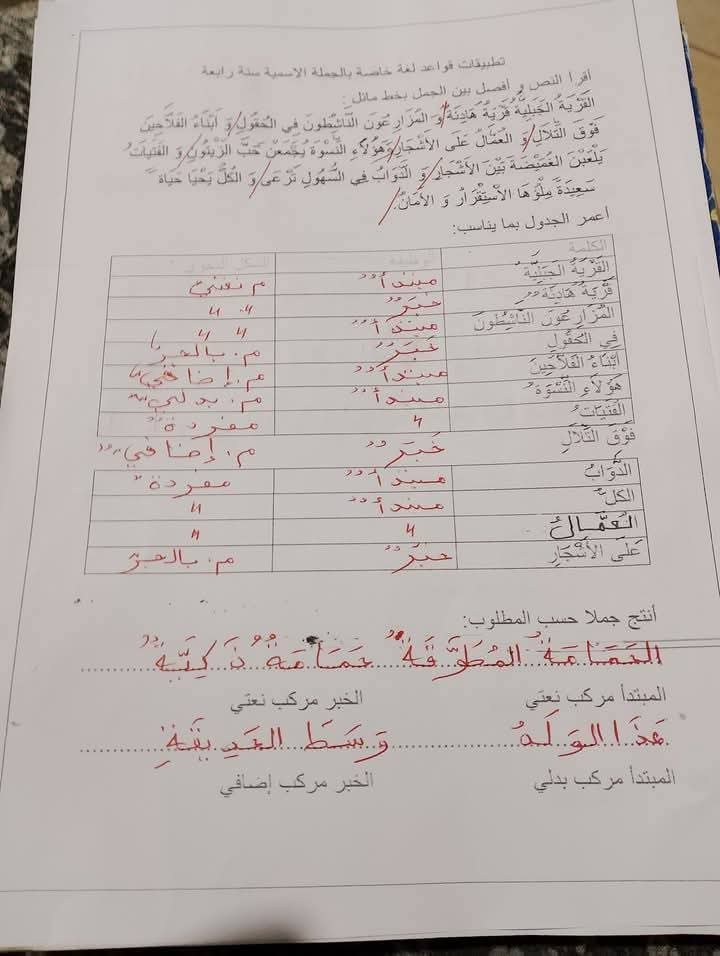 تطبيقات قواعد لغة خاصة بالجملة الاسمية سنة رابعة
أقرأ النص و أفصل بين الجمل بخط مائل:
القَرْيَةُ الجَبَلِيَّةُ قَرْيَةٌ هَادِئَةٌ/وَ المُزَارِعُونَ النَّاشِطُونَ فِي الحُقُولِ/وَ أَبْنَاءُ الفَلَّاحِينَ
فَوْقَ التِّلَالِ/وَ العُمَّالُ عَلَى الأَشْجَارِ/وَهَؤُلَاءِ النِّسْوَةُ يَجْمَعْنَ حَبَّ الزَّيْتُونِ/وَ الفَتَيَاتُ
يَلْعَبْنَ الغُمَيْضَةَ بَيْنَ الأَشْجَارِ/وَ الدَّوَابُّ فِي السُّهُولِ تَرْعَى/وَ الكُلُّ يَحْيَا حَيَاةً
سَعِيدَةً مِلْؤُهَا الاسْتِقْرَارُ وَ الأَمَانُ./
أعمر الجدول بما يناسب:
الكلمة
القَرْيَةُ الجَبَلِيَّةُ مبتدأ م نعتي
قَرْيَةٌ هَادِئَةٌ خبر " "
المُزَارِعُونَ النَّاشِطُونَ مبتدأ " "
فِي الحُقُولِ خبر م. بالجر
أَبْنَاءُ الفَلَّاحِينَ مبتدأ م. إضافي
هَؤُلَاءِ النِّسْوَةُ مبتدأ م. بدلي
الفَتَيَاتُ " مفردة
فَوْقَ التِّلَالِ خبر م. إضافي
الدَّوَابُّ مبتدأ مفردة
الكلُّ مبتدأ "
العُمَّالُ " "
عَلَى الأَشْجَارِ خبر م. بالجر
أنتج جملا حسب المطلوب:
الحَمَامَةُ المُطَوَّقَةُ حَمَامَةٌ ذَكِيَّةٌ
المبتدأ مركب نعتي الخبر مركب نعتي
هَذَا الوَلَدُ وَسَطَ الحَدِيقَةِ
المبتدأ مركب بدلي الخبر مركب إضافي